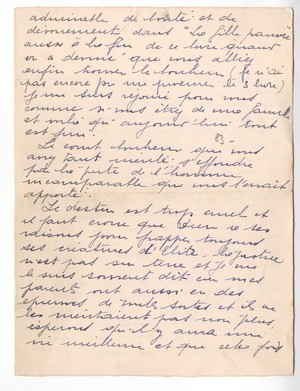 admirable de bonté et de
dévouement, dans "La fille pauvre"
aussi à la fin de ce livre quand
on a deviné que vous alliez
enfin trouver le bonheur (Je n'ai
pas encore pu me procurer le 3 livre)
Je me suis réjouie pour vous
comme si vous étiez de ma famille
et voilà qu'aujourd'hui tout
est fini!
Le court bonheur que vous
avez tant mérité s'effondre
par la perte de l'homme
incomparable que vous l'avait
apporté.
Le destin est trop cruel et
il faut croire que Dieu a ses
raisons pour frapper toujours
ses créatures d'Élite. La justice
n'est pas sur terre et je me
le suis souvent dit car mes
parents ont aussi eu des
épreuves de toutes sortes et ils ne
les méritaient pas non plus,
espérons qu'il y aura une
vie meilleure et que cette fois